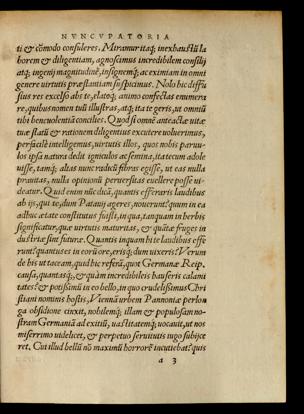 NVNCVPATORIA
ti & cõmodo consuleres. Miramur itaq; inexhaustũ la
borem & diligentiam, agnoscimus incredibilem consilij
atq; ingenij magnitudinẽ, insignemq; ac eximiam in omni
genere virtutis præstantiam suspicimus. Nolo hic diffu
sius res excelso abs te, elatoq; animo confectas enumera
re, quibus nomen tuũ illustras, atq; ita te geris, ut omniũ
tibi beneuolentiã concilies. Quod si omnẽ anteactæ vitæ
tuæ statũ & rationem diligentius excutere voluerimus,
perfacilè intelligemus, virtutis illos, quos nobis paruu-
los ipsa natura dedit igniculos ac semina, ita tecum adole
uisse, tamq; altas nunc radicũ fibras egisse, ut eas nulla
prauitas, nulla opinionũ peruersitas euellere posse vi-
deatur. Quid enim nũc dicã, quantis efferaris laudibus
ab ijs, qui te, dum Patauij ageres, nouerunt? quum in ea
adhuc ætate constitutus fuisti, in qua, tanquam in herbis
significatur, quæ virtutis maturitas, & quãtæ fruges in
dustriæ sint futuræ. Quantis inquam hi te laudibus effe
runt? quantus es in eorũ ore, crisq; dum vixeris? Verum
de his ut taceam, quid hic referã, quot Germanæ Reip.
causa, quantasq;, & quàm incredibileis hauseris calami
tates? & potißimũ in eo bello, in quo crudelißimus Chri
stiani nominis hostis, Viennã urbem Pannoniæ perlon
ga obsidione cinxit, nobilemq; illam & populosam no-
stram Germaniã ad exitiũ, uastitatemq; uocauit, ut nos
miserrimo uidelicet, & perpetuo seruitutis iugo subijce
ret. Cui illud bellũ nõ maximũ horrorẽ incutiebat? quis
a 3